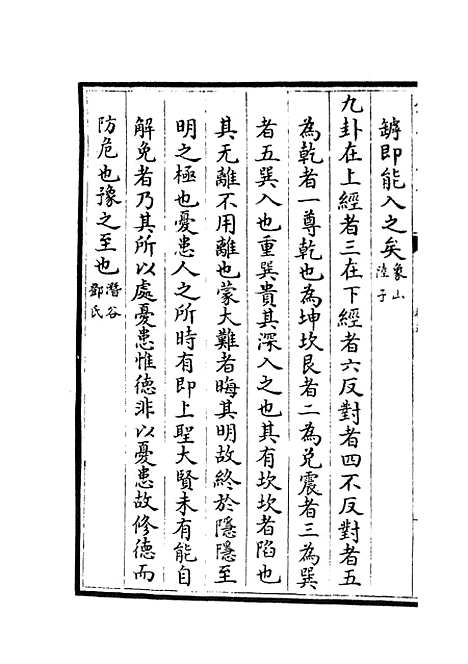 罅即能入之矣象山陸子
九卦在上經者三在下經者六反對者四不反對者五
為乾者一尊乾也為坤坎艮者二為兌震者三為巽
者五巽入也重巽貴其深入之也其有坎坎者陷也
其无離不用離也蒙大難者晦其明故終於隱隱至
明之極也憂患人之所時有即上聖大賢未有能自
解免者乃其所以處憂患惟德非以憂患故修德而
防危也豫之至也潛谷鄧氏